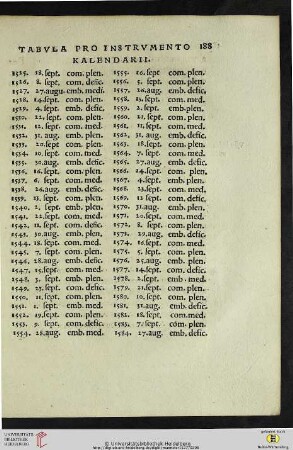 TABVLA PRO INSTRVMENTO 188
KALENDARII.
1525. 18. sept. com. plen. 1555. 16. sept com. plen.
1526. 8. sept. com. defic. 1556. 5. sept. com. plen.
1527. 27. augu. emb. medi. 1557. 26. aug. emb. defic.
1528. 14. sept. com. plen. 1558. 13. sept. com. med.
1529. 4. sept. emb. defic. 1559. 2. sept. emb. plen.
1530. 22. sept. com. plen. 1560. 21. sept. com. plen.
1531. 12. sept. com. med. 1561. 11. sept. com. defic.
1532. 31. aug. emb. plen. 1562. 31. aug. emb. defic.
1533. 20. sept com. plen. 1563. 18. sept. com. plen.
1534. 10. sept. com. med. 1564. 7. sept. com. med.
1535. 30. aug. emb. defic. 1565. 27. aug. emb. defic.
1536. 16. sept. com. plen. 1566. 14. sept. com. plen.
1537. 6. sept. com. med. 1567. 4. sept. emb. plen.
1538. 26. aug. emb. defic. 1568. 23. sept. com. med.
1539. 13. sept. com. plen. 1569. 12 sept. com. defic.
1540. 2. sept. emb. plen. 1570. 31. aug. emb. plen.
1541. 22. sept. com. med. 1571. 20. sept. com. med.
1542. 11. sept. com. defic. 1572. 8. sept. com. plen.
1543. 30. aug. emb. plen. 1573. 29. aug. emb. defic.
1544. 18. sept. com. med. 1574. 16. sept. com. med.
1545. 7. sept. com. plen. 1575. 5. sept. com. plen.
1546. 28. aug. emb. defic. 1576. 25. aug. emb. plen.
1547. 15. sept. com. med. 1577. 13. sept. com. defic.
1548. 3. sept. emb. plen. 1578. 2. sept. emb. med.
1549. 23. sept. com. defic. 1579. 21. sept. com. plen.
1550. 12. sept. com. plen. 1580. 10. sept. com. plen.
1551. 1. sept. emb. med. 1581. 31. aug. emb. defic.
1552. 19. sept. com. plen. 1582. 18. sept. com. med.
1553. 9. sept. com. defic. 1583. 7. sept. com. plen.
1554. 28. aug. emb. med. 1584. 27. aug. emb. defic.
UNIVERSITÄTS-
BIBLIOTHEK
HEIDELBERG
© Universitätsbibliothek Heidelberg